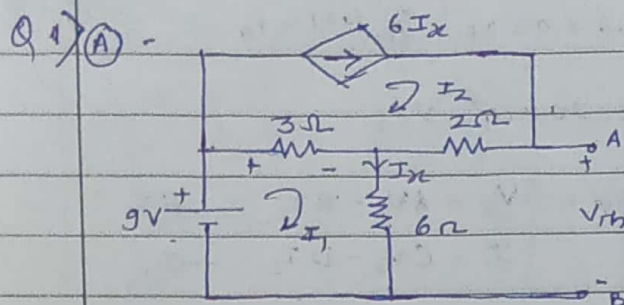 Q 1) A -
6Ix
I2
3Ω 2Ω A
+ - Ix +
9V + - I1 6Ω Vth
- B